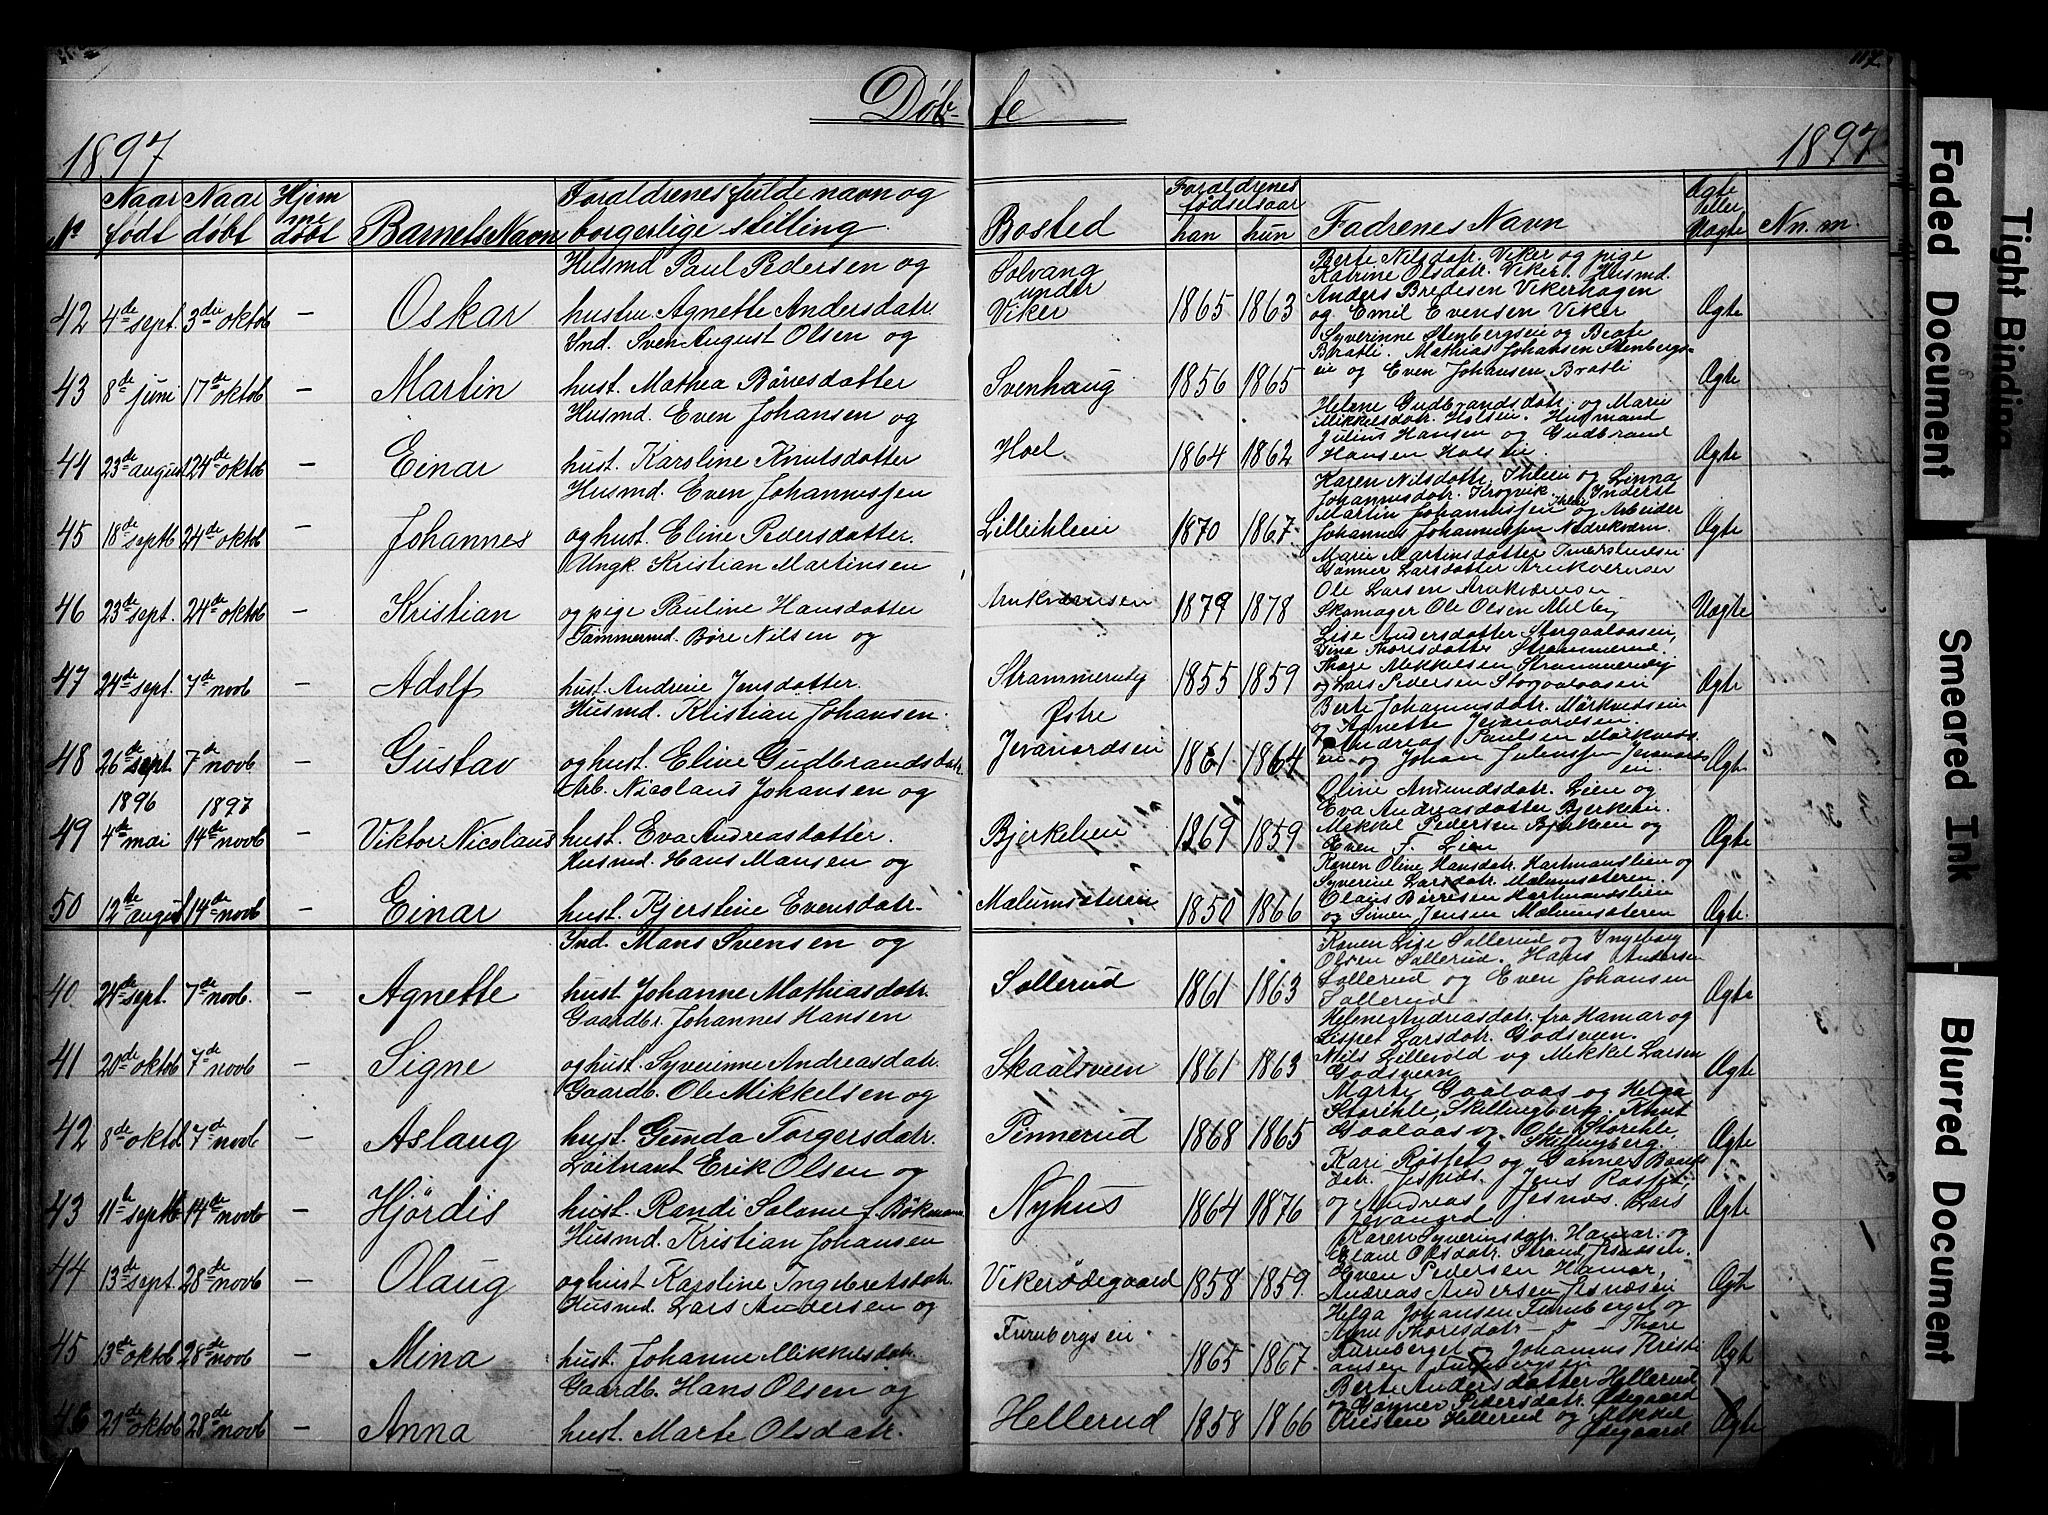 117.
Døb- te
1897 1897
No Naar født Naar døbt Hjemmedøbt Barnets Navn Forældrenes fulde navn og borgerlige stilling Bosted Forældrenes fødselsaar han hun Fadrenes Navn Ægte eller Uægte An. m.
42 4de sept. 3die oktob – Oskar Husmd Paul Pedersen og hustru Agnette Andersdatr. Solvang under Viker 1865 1863 Berte Nilsdatr. Viker og pige Katrine Olsdatr. Viker. Husmd. Anders Bredesen Vikerhagen og Emil Evensen Viker Ægte
43 8de juni 17de oktob – Martin Ind. Sven August Olsen og hust. Mathea Børresdatter Svenhaug 1856 1865 Syverinne Stenbergseie og Beate Bratli. Mathias Johansen Stenbergseie og Even Johansen Bratli Ægte
44 23de august 24de oktob – Einar Husmd. Even Johansen og hust. Karoline Knutsdatter Hoel 1864 1862 Helene Gudbrandsdatr. og Marie Mikkelsdatr. Holsen. Husmand Julius Hansen og Gudbrand Hansen Ægte
45 18de septb 24de oktob – Johannes Husmd. Even Johannessen og hust. Eline Pedersdatter. Lilleihleie 1870 1867 Karen Nilsdottr. Ihleie og Linna Johannisdatr. Krogvik. Inderst Martin Johannessen Ihleie og Arbeider Johannes Johannessen Nedrekværn. Ægte
46 23de sept. 24de oktob – Kristian Ungk. Kristian Martinsen og pige Pauline Hansdatter Arnkværnsen 1879 1878 Marie Martinsdatter Gønner Larsdatter Ole Larsen Skomager Ole Olsen Milbey Uægte
47 24de sept. 7de novb – Adolf Tømmermd. Børe Nilsen og hust. Andrine Jensdatter. Strammerudey 1855 1859 Lise Andersdatter Dina Thoresdatter Strammerud. Thore Mikkelsen Strammerudey og Lars Pedersen Ægte
48 26de sept 7de novb – Gustav Husmd. Kristian Johansen. og hust. Eline Gudbrandsdatr. Østre Jevanordseie 1861 1864 Berte Johannisdatr. Mørkvedseie og Agnette Jevanordseie. Andreas Paulsen Mørkvedseie og Johan Julinussen Jevanordseie. Ægte
49 1896 4de mai 1897 14de novb – Viktor Nicolaus Arb. Nicolaus Johansen og hust. Eva Andreasdatter. Bjerkelien 1869 1859 Oline Amundsdatr. Lien og Eva Andreasdatter Mikkel Pedersen og Even F. Lien Ægte
50 12te august 14de novb – Einar Husmd. Hans Mansen og hust. Kjerstine Evensdatr. Mælumsæteren 1850 1866 Karen Oline Hansdatr. Hartmanslien og Syverine Larsdatr. Mælumsæteren. Olaus Børresen Hartmanslien og Simen Jensen Mælumsæteren Ægte.
40 24de sept. 7de novb. – Agnette Ind. Mans Svensen og hust. Johanne Mathiasdatr. Sollerud 1861 1863 Karen Lise Sollerud og Ingeborg Olsen Sollerud. Hans Andersen Sollerud og Even Johansen Sollerud Ægte
41 20de oktob 7de novb – Signe Gaardbr. Johannes Hansen og hust. Syverinne Andreasdatr. Skaalsveen 1861 1863 Helene Andreasdatr. fra Hamar og Lispet Larsdatr. Godsveen. Nils Lillevold og Mikkel Larsen Godsveen Ægte
42 8de oktob 7de novb – Aslaug Gaardb. Ole Mikkelsen og hust. Gunda Torgersdatr. Pinnerud 1868 1865 Marte Gaalaas og Helga Storihle, Skillingberg. Knut Gaalaas og Ole Storihle, Skillingberg. Ægte
43 11te septb 14de novb – Hjørdis Løitnant Erik Olsen og hust. Randi Salome f. Bøkman Nyhus 1864 1876 Kari og Andreas Jesnes. Lars Jevanord Ægte
44 13de sept. 28de novb – Olaug Husmd. Kristian Johansen og hust Karoline Ingebretsdatr. Vikerødegaard 1858 1859. Karen Syverinsdatr. Hamar. og Olsdatr. Strand, Even Pedersen Hamar, Andreas Andersen Jesnæseie Ægte
45 13de oktob 28de novb – Mina Husmd. Lars Andersen og hust. Johanne Mikkelsdatr. Furubergseie 1865 1867 Helga Johansen Furuberget og Anne Thoresdatr – " – Thore Furuberget og Johannes Kristiansen Furubergseie Ægte
46 21de oktob 28de novb – Anna Gaardb. Hans Olsen og hust. Marte Olsdatr. Hellerud 1858 1866 Berte Andersdatter Hellerud og Gønner Pedersdatr. Ødegaard Kristen Hellerud og Mikkel Ødegaard Ægte
Faded Document
Tight Binding
Smeared Ink
Blurred Document